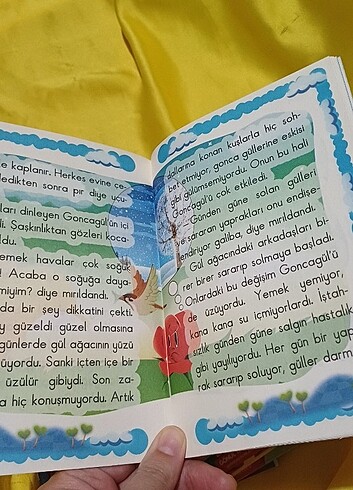 e kaplanır. Herkes evine çe-
ledikten sonra pır diye uçu
ları dinleyen Goncagül'ün içi
ldu. Şaşkınlıktan gözleri koca
emek havalar çok soğuk
! Acaba o soğuğa daya-
miyim? diye mırıldandı.
da bir şey dikkatini çekti.
y güzeldi güzel olmasına
günlerde gül ağacının yüzü
üyordu. Sanki içten içe bir
üzülür gibiydi. Son za-
a hiç konuşmuyordu. Artık
dallarına konan kuşlarla hiç soh-
bet etmiyor, gonca güllerine eskisi
gibi gülümsemiyordu. Onun bu hali
Goncagül'ü çok etkiledi.
Günden güne solan gülleri
ve sararan yaprakları onu endişe-
lendiriyor galiba, diye mırıldandı.
Gül ağacındaki arkadaşları bi-
rer birer sararıp solmaya başladı.
Onlardaki bu değişim Goncagül'ü
de üzüyordu. Yemek yemiyor,
kana kana su içmiyorlardı. İştah-
sızlık günden güne salgın hastalık
gibi yayılıyordu. Her gün bir yap
rak sararıp soluyor, güller darm